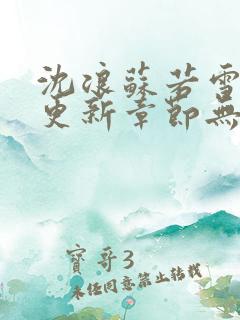 沈浪蘇若雪
更新章節無
寶哥3
未經同意禁止轉載